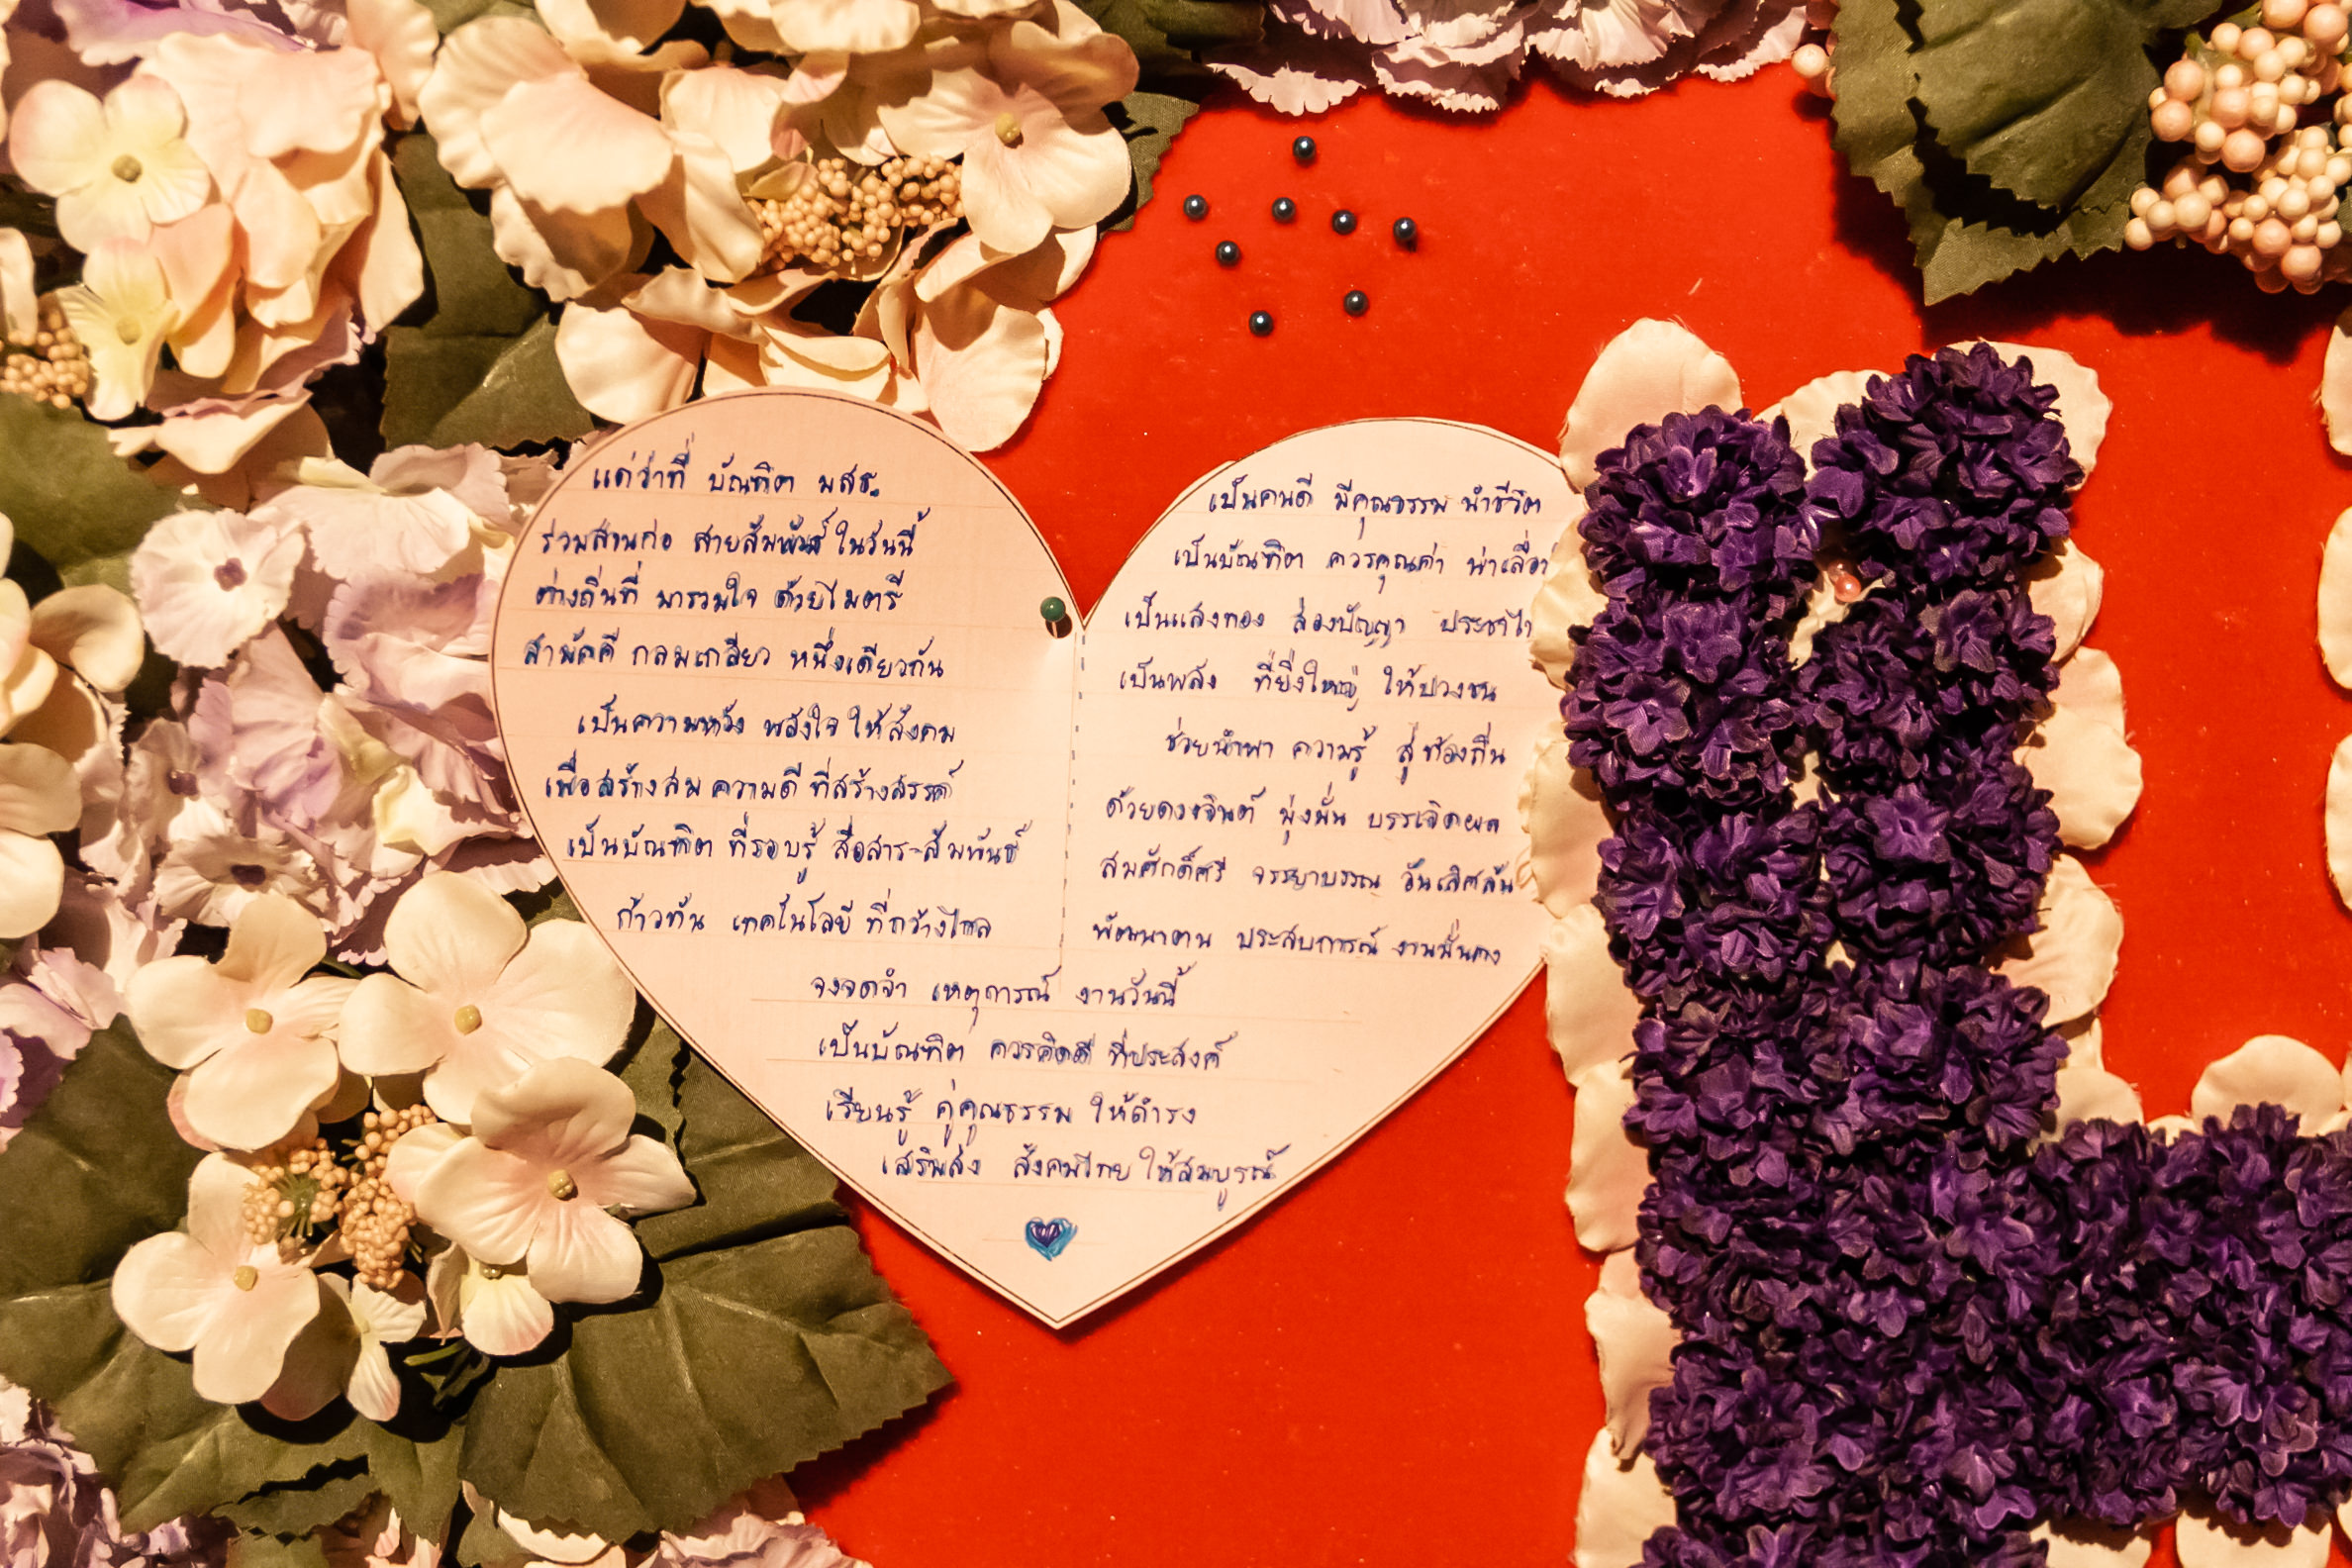 แด่ว่าที่ บัณฑิต มสธ.
ร่วมสานก่อ สายสัมพันธ์ ในวันนี้
ต่างถิ่นที่ มารวมใจ ด้วยไมตรี
สามัคคี กลมเกลียว หนึ่งเดียวกัน
เป็นความหวัง พลังใจ ให้สังคม
เพื่อสร้างสม ความดี ที่สร้างสรรค์
เป็นบัณฑิต ที่รอบรู้ สื่อสาร-สัมพันธ์
ก้าวทัน เทคโนโลยี ที่กว้างไกล
เป็นคนดี มีคุณธรรม นำชีวิต
เป็นบัณฑิต ควรคุณค่า น่าเลื่อ
เป็นแสงทอง ส่องปัญญา ประชาไ
เป็นพลัง ที่ยิ่งใหญ่ ให้ปวงชน
ช่วยนำพา ความรู้ สู่ท้องถิ่น
ด้วยดวงจินต์ มุ่งมั่น บรรเจิดผล
สมศักดิ์ศรี จรรยาบรรณ อันเลิศล้น
พัฒนาตน ประสบการณ์ งานมั่นคง
จงจดจำ เหตุการณ์ งานวันนี้
เป็นบัณฑิต ควรคิดดี ที่ประสงค์
เรียนรู้ คู่คุณธรรม ให้ดำรง
เสริมส่ง สังคมไทย ให้สมบูรณ์